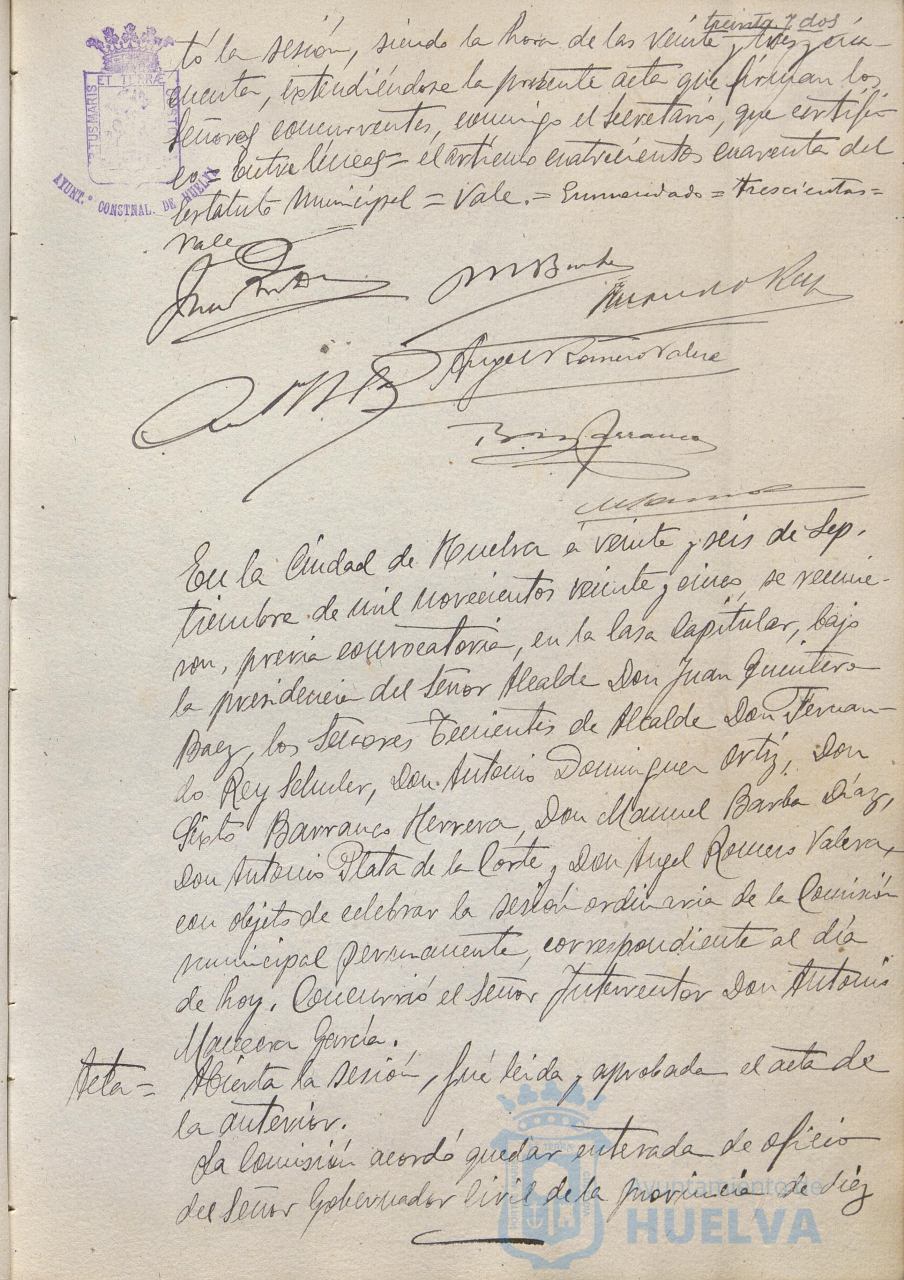 treinta y dos
tó la sesión, siendo la hora de las veinte y tres y cin-
cuenta, extendiéndose la presente acta que firman los
Señores concurrentes, conmigo el secretario, que certifi-
co = Entre líneas = el artículo cuatrocientos cuarenta del
Estatuto Municipal = Vale. = Enmendado = trescientas =
Vale
PORTUS MARIS ET TERRÆ CUSTODIA
AYUNT.º CONSTNAL. DE HUELVA
M Barba
Fernando Rey
Angel Romero Valera
Barranco
En la Ciudad de Huelva á veinte y seis de Sep-
tiembre de mil novecientos veinte y cinco, se reunie-
ron, previa convocatoria, en la Casa Capitular, bajo
la presidencia del Señor Alcalde Don Juan Quintero
Baez, los Señores Tenientes de Alcalde Don Fernan-
do Rey Schuler, Don Antonio Dominguez Ortiz, Don
Sixto Barranco Herrera, Don Manuel Barba Díaz,
Don Antonio Plata de la Corte y Don Angel Romero Valera,
con objeto de celebrar la sesión ordinaria de la Comisión
municipal permanente, correspondiente al día
de hoy. Concurrió el Señor Interventor Don Antonio
García.
Acta = Abierta la sesión, fué leida y aprobada el acta de
la anterior.
La Comisión acordó quedar enterada de oficio
del Señor Gobernador Civil de la provincia de diez
Ayuntamiento de
HUELVA